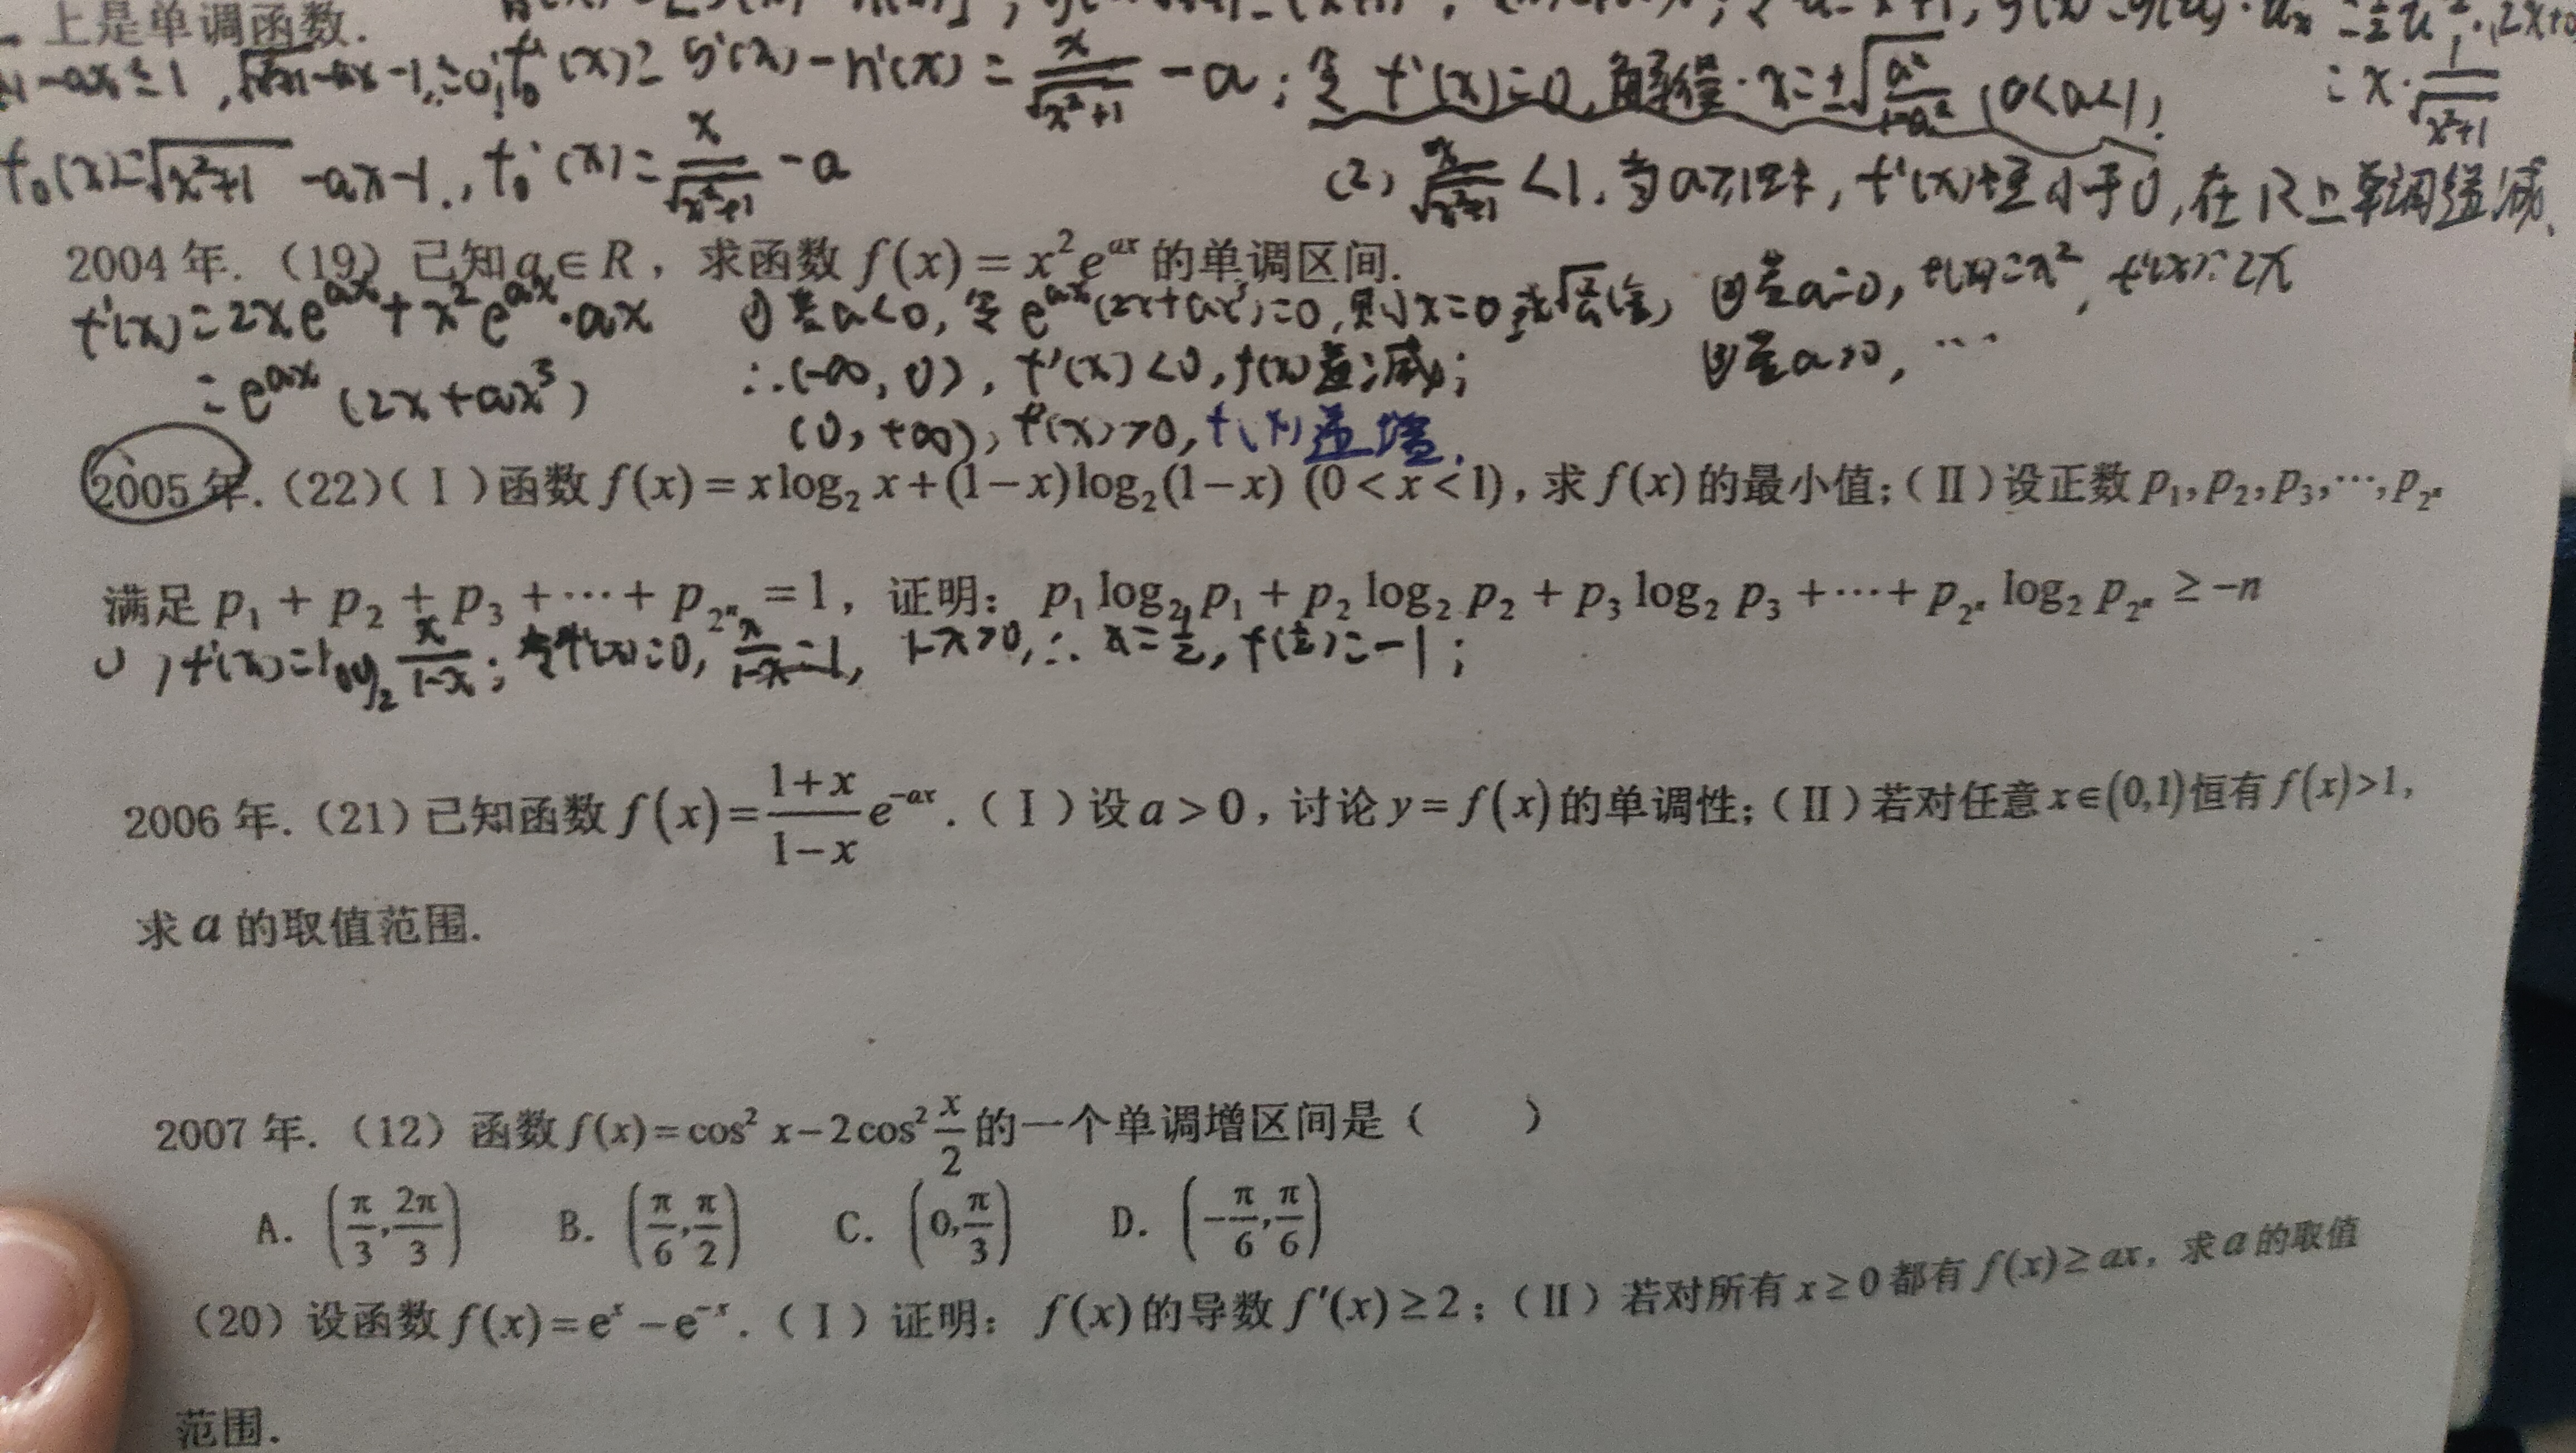 上是单调函数.
f'(x)=g'(x)-h'(x)=x/√(x²+1) -a; 令f'(x)=0,解得·x=±√(a²/(1-a²)) (0<a<1);
=x·1/√(x²+1)
f₀(x)=√(x²+1)-ax-1., f₀'(x)=x/√(x²+1) -a
(2) x/√(x²+1)<1,当a≥1时,f'(x)恒小于0,在R上单调递减.
2004年.（19）已知a∈R，求函数f(x)=x²e^{ax}的单调区间.
f'(x)=2xe^{ax}+x²e^{ax}·ax
=e^{ax}(2x+ax³)
①若a<0,令e^{ax}(2x+ax³)=0,则x=0或
∴(-∞,0),f'(x)<0,f(x)递减;
(0,+∞),f'(x)>0,f(x)递增.
②若a=0,f(x)=x²,f'(x)=2x
③若a>0,…
2005年.（22）（Ⅰ）函数f(x)=xlog₂x+(1-x)log₂(1-x) (0<x<1)，求f(x)的最小值;（Ⅱ）设正数p₁,p₂,p₃,…,p_{2ⁿ}
满足p₁+p₂+p₃+…+p_{2ⁿ}=1，证明：p₁log₂p₁+p₂log₂p₂+p₃log₂p₃+…+p_{2ⁿ}log₂p_{2ⁿ}≥-n
f'(x)=log₂ x/(1-x); 令f'(x)=0, x/(1-x)=1, 1-x>0,∴x=1/2,f(1/2)=-1;
2006年.（21）已知函数f(x)=(1+x)/(1-x) e^{-ax}.（Ⅰ）设a>0，讨论y=f(x)的单调性;（Ⅱ）若对任意x∈(0,1)恒有f(x)>1，
求a的取值范围.
2007年.（12）函数f(x)=cos²x-2cos²x/2的一个单调增区间是（ ）
A. (π/3,2π/3) B. (π/6,π/2) C. (0,π/3) D. (-π/6,π/6)
（20）设函数f(x)=eˣ-e⁻ˣ.（Ⅰ）证明：f(x)的导数f'(x)≥2;（Ⅱ）若对所有x≥0都有f(x)≥ax，求a的取值
范围.